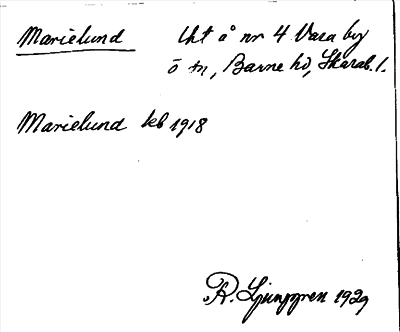 Marielund Uht å nr 4 Vara by
ö sn, Barne hd, Skarab. l.
Marielund keb 1918
R. Ljunggren 1929